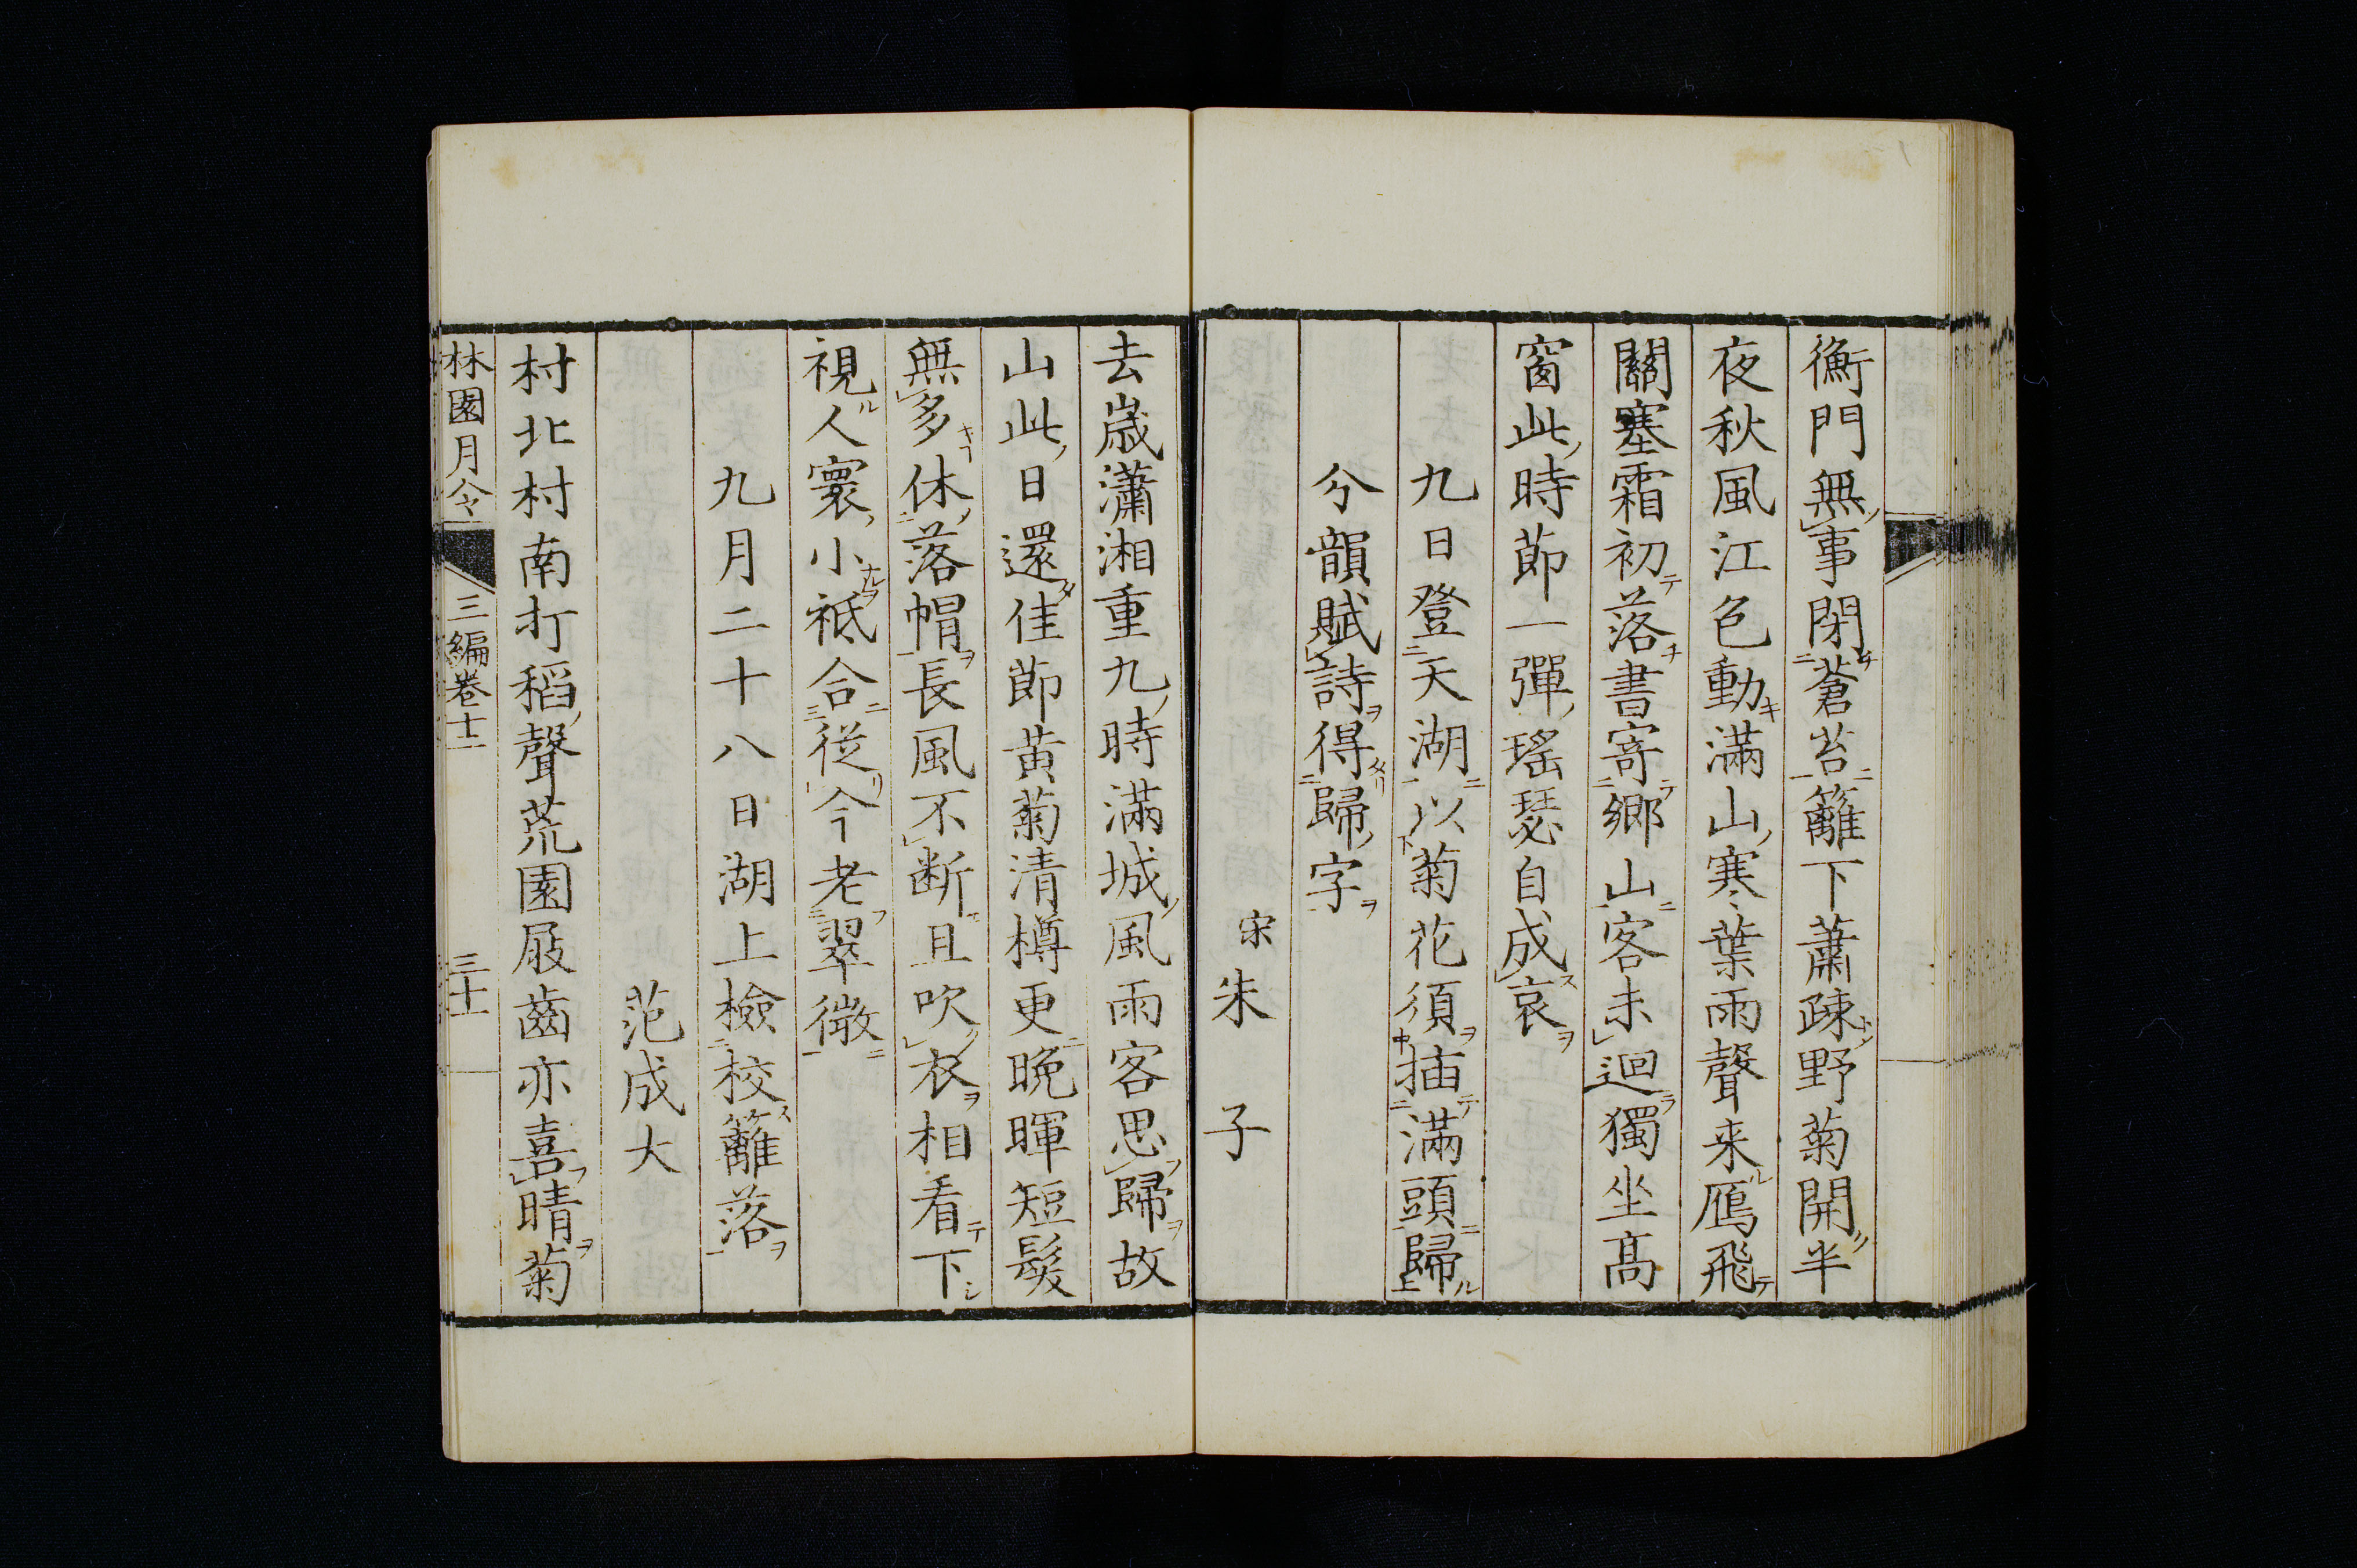 衡門無事閉蒼苔籬下蕭疎野菊開半
夜秋風江色動滿山寒葉雨聲来鴈飛
關塞霜初落書寄鄉山客未迴獨坐高
窗此時節一彈瑤瑟自成哀
九日登天湖以菊花須插滿頭歸
分韻賦詩得歸字
宋朱子
去歳瀟湘重九時滿城風雨客思歸故
山此日還佳節黄菊清樽更晚暉短髮
無多休落帽長風不断且吹衣相看下
視人寰小祗合從今老翠微
九月二十八日湖上檢校籬落
范成大
村北村南打稻聲荒園屐齒亦喜晴菊
林園月令 三編卷十一 三十一